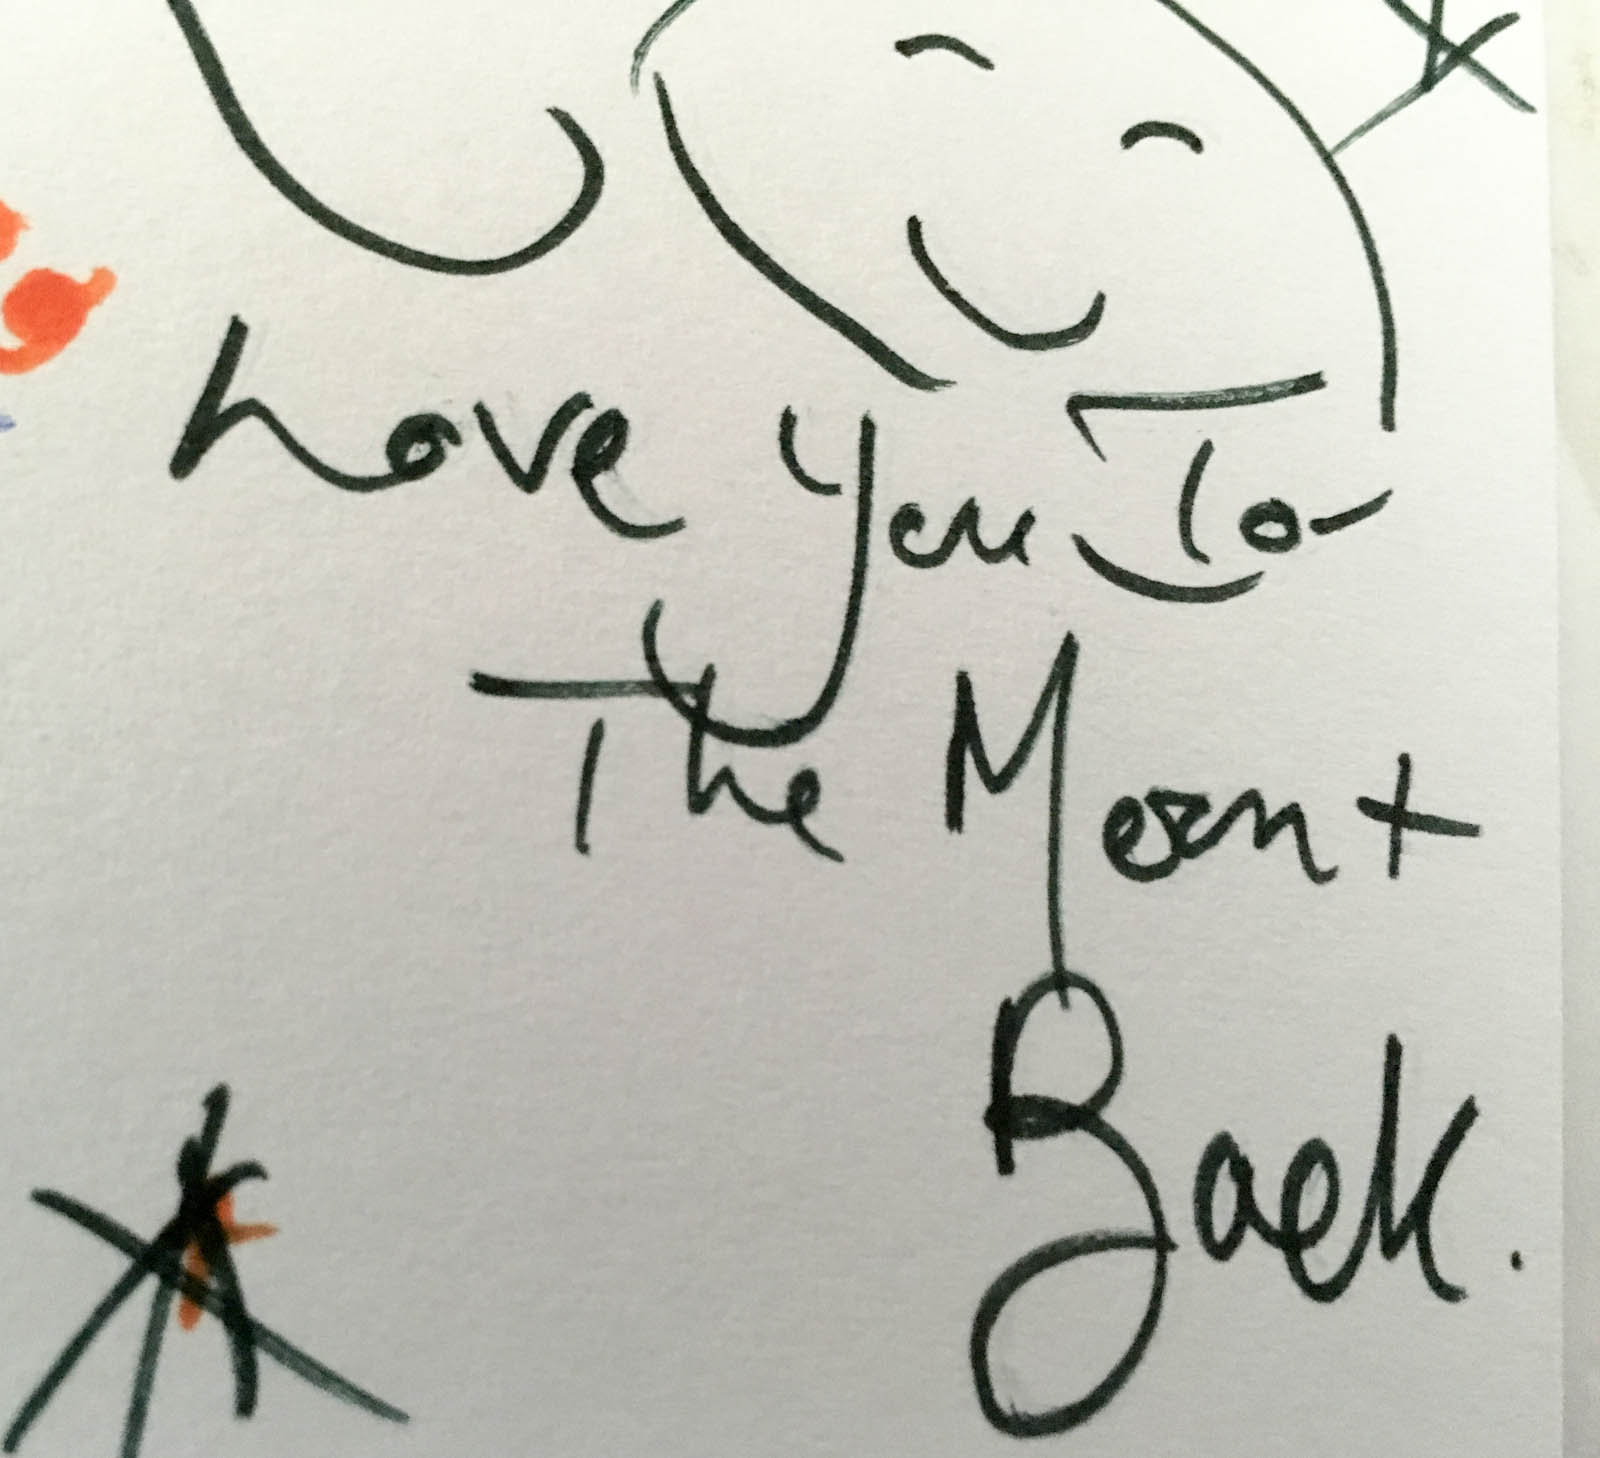 Love You To
The Moon +
Back.